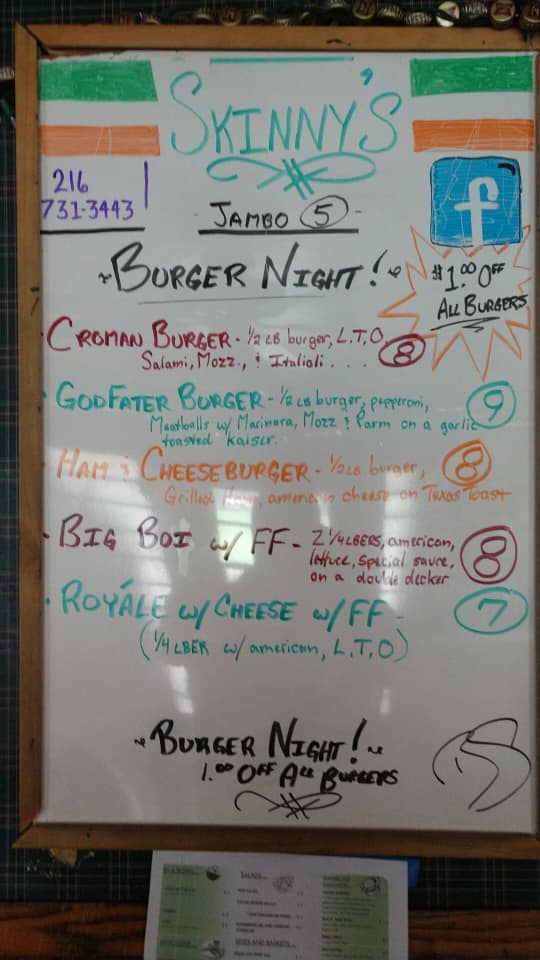 SKINNY'S
216
731-3443
f
- JAMBO 5 -
~ BURGER NIGHT! ~
$1.00 OFF
ALL BURGERS
· CROMAN BURGER - 1/2 LB burger, L.T,O
Salami, Mozz., & Italioli . . . 8
· GODFATER BURGER - 1/2 LB burger, pepperoni, 9
Meatballs w/ Marinara, Mozz & Parm on a garlic
toasted kaiser.
· HAM & CHEESEBURGER - 1/2 LB burger, 8
Grilled Ham, american cheese on Texas Toast
· BIG BOI w/ FF - 2 1/4 LBERS, american, 8
lettuce, special sauce,
on a double decker
· ROYÁLE w/ CHEESE w/ FF - 7
(1/4 LBER w/ american, L.T,O)
~ BURGER NIGHT! ~
1.00 OFF ALL BURGERS
SALADS